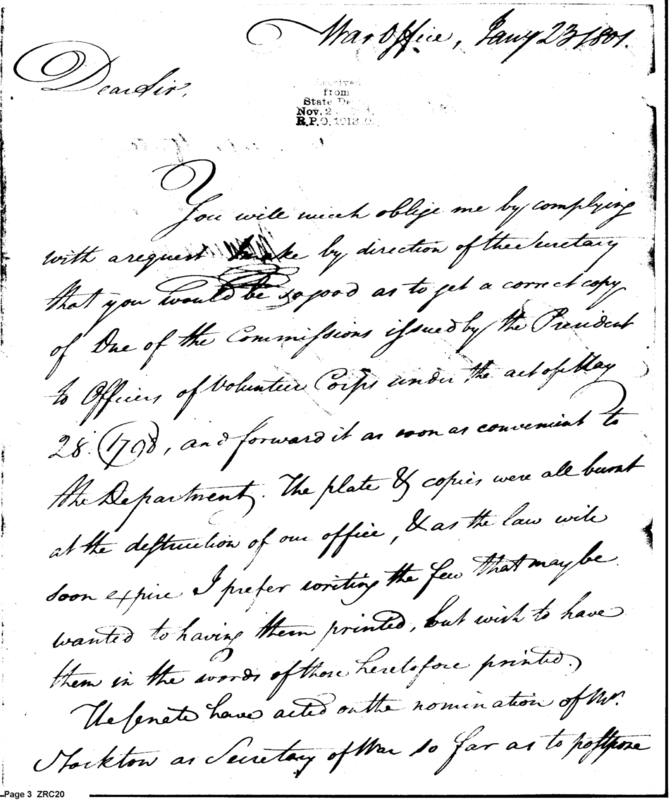 War Office, Jany 23 1801.
Dear Sir,
from
State De
Nov. 2
R.P.O.
You will much oblige me by complying
with a request make by direction of the Secretary
that you would be so good as to get a correct copy
of One of the Commissions issued by the President
to Officers of Volunteer Corps under the act of May
28. 1798, and forward it as soon as convenient to
the Department. The plate & copies were all burnt
at the destruction of our office, & as the law will
soon expire I prefer writing the few that may be
wanted to having them printed, but wish to have
them in the words of those heretofore printed.
The Senate have acted on the nomination of Mr.
Stockton as Secretary of War so far as to postpone
Page 3 ZRC20